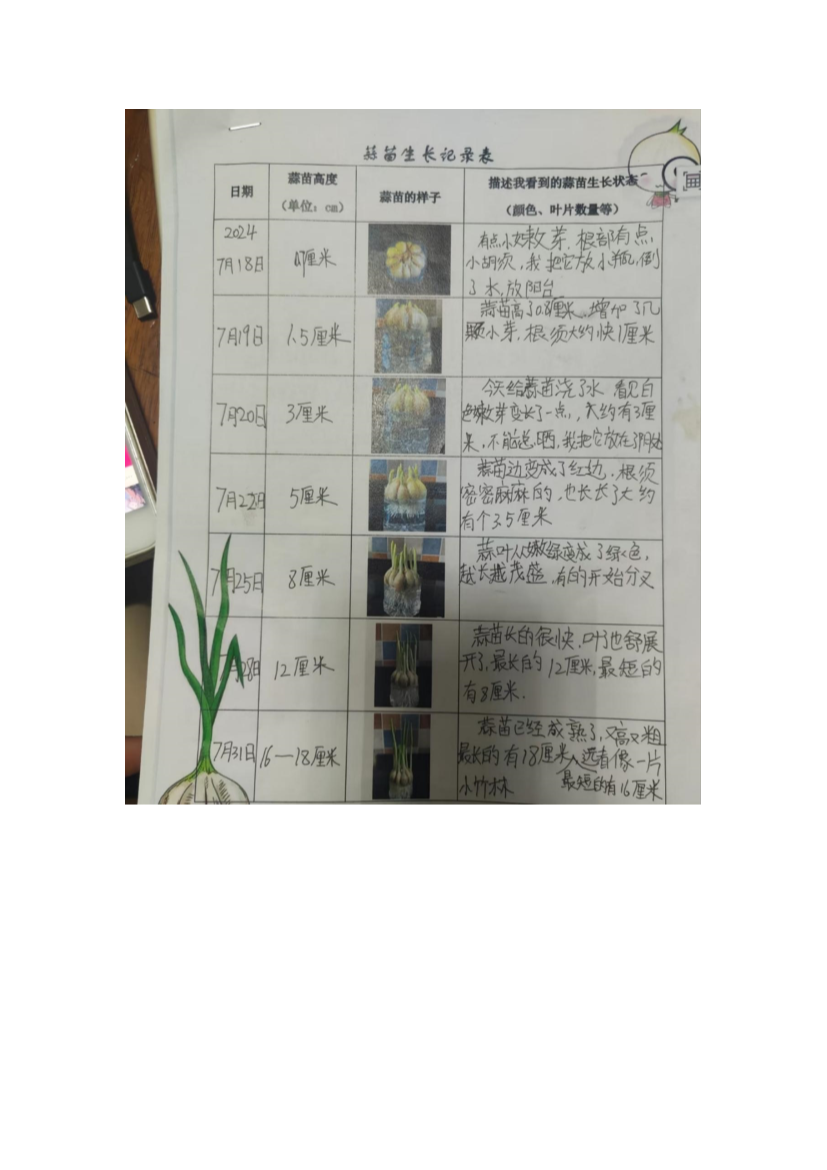 蒜苗生长记录表
日期
蒜苗高度
（单位：cm）
蒜苗的样子
描述我看到的蒜苗生长状态
（颜色、叶片数量等）
2024
7月18日
0.7厘米
有点小嫩芽，根部有点
小胡须，我把它放小瓶，倒
了水，放阳台
7月19日
1.5厘米
蒜苗高了0.8厘米，增加了几
颗小芽，根须大约快1厘米
7月20日
3厘米
今天给蒜苗浇了水，看见白
色嫩芽变长了一点，大约有3厘
米，不能总晒，我把它放在了阴处
7月22日
5厘米
蒜苗边变成了红边，根须
密密麻麻的，也长长了大约
有个3.5厘米
7月25日
8厘米
蒜叶从嫩绿变成了绿色，
越长越茂盛，有的开始分叉
7月28日
12厘米
蒜苗长的很快，叶子也舒展
开了，最长的12厘米，最短的
有8厘米．
7月31日
16—18厘米
蒜苗已经成熟了，又高又粗
最长的有18厘米，远看像一片
小竹林
最短的有16厘米
画